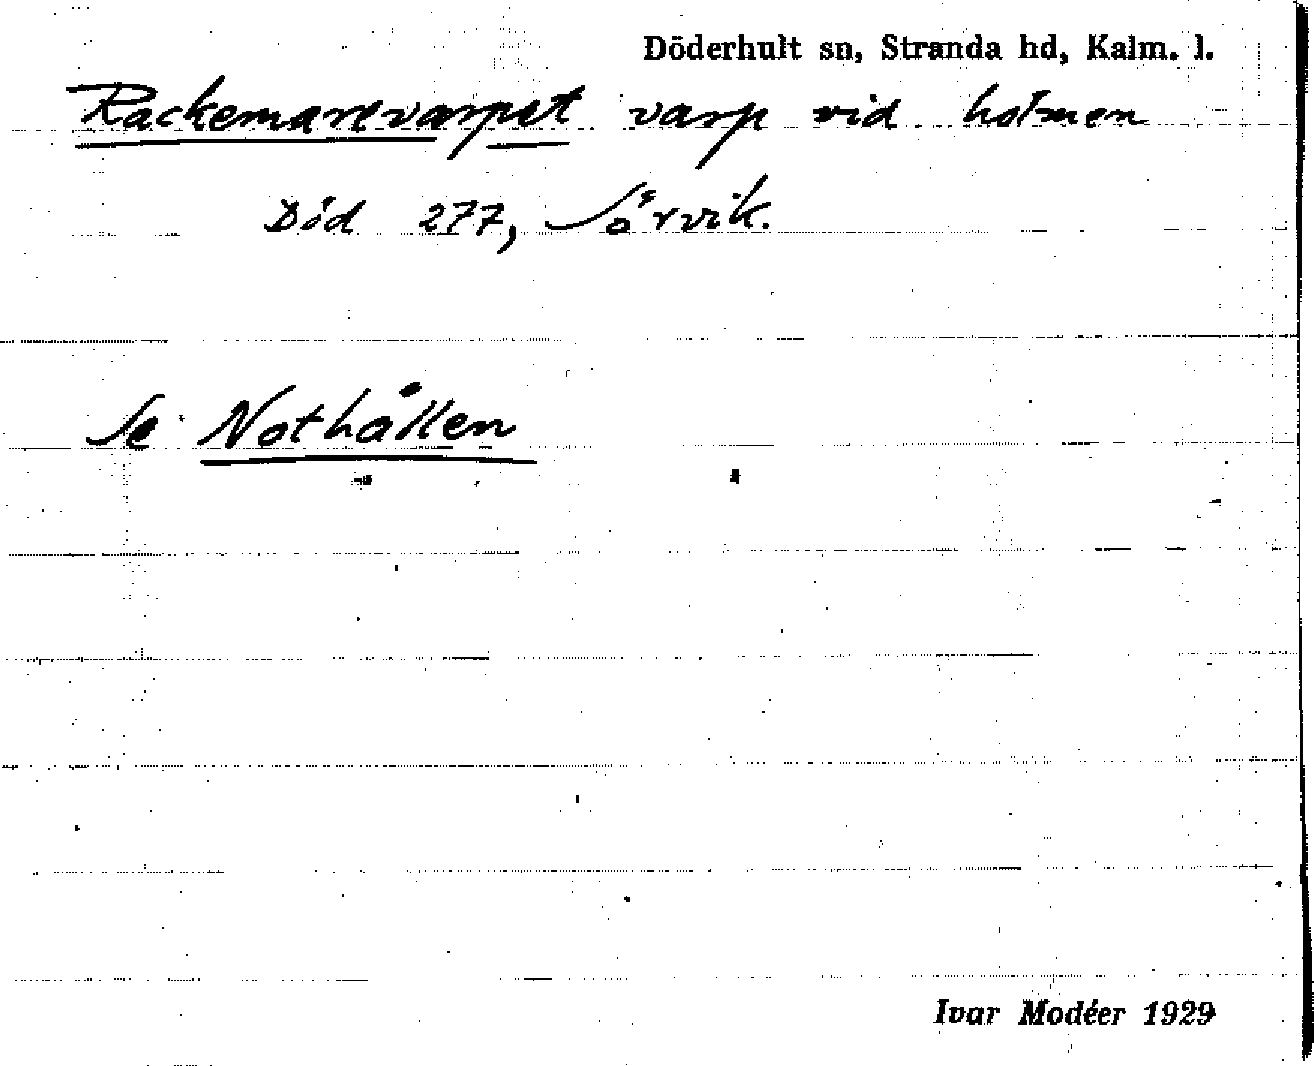 Döderhult sn, Stranda hd, Kalm. l.
Rackemarevarpet varp vid holmen
Död 277, Sörvik.
Se Nothållen
Ivar Modéer 1929